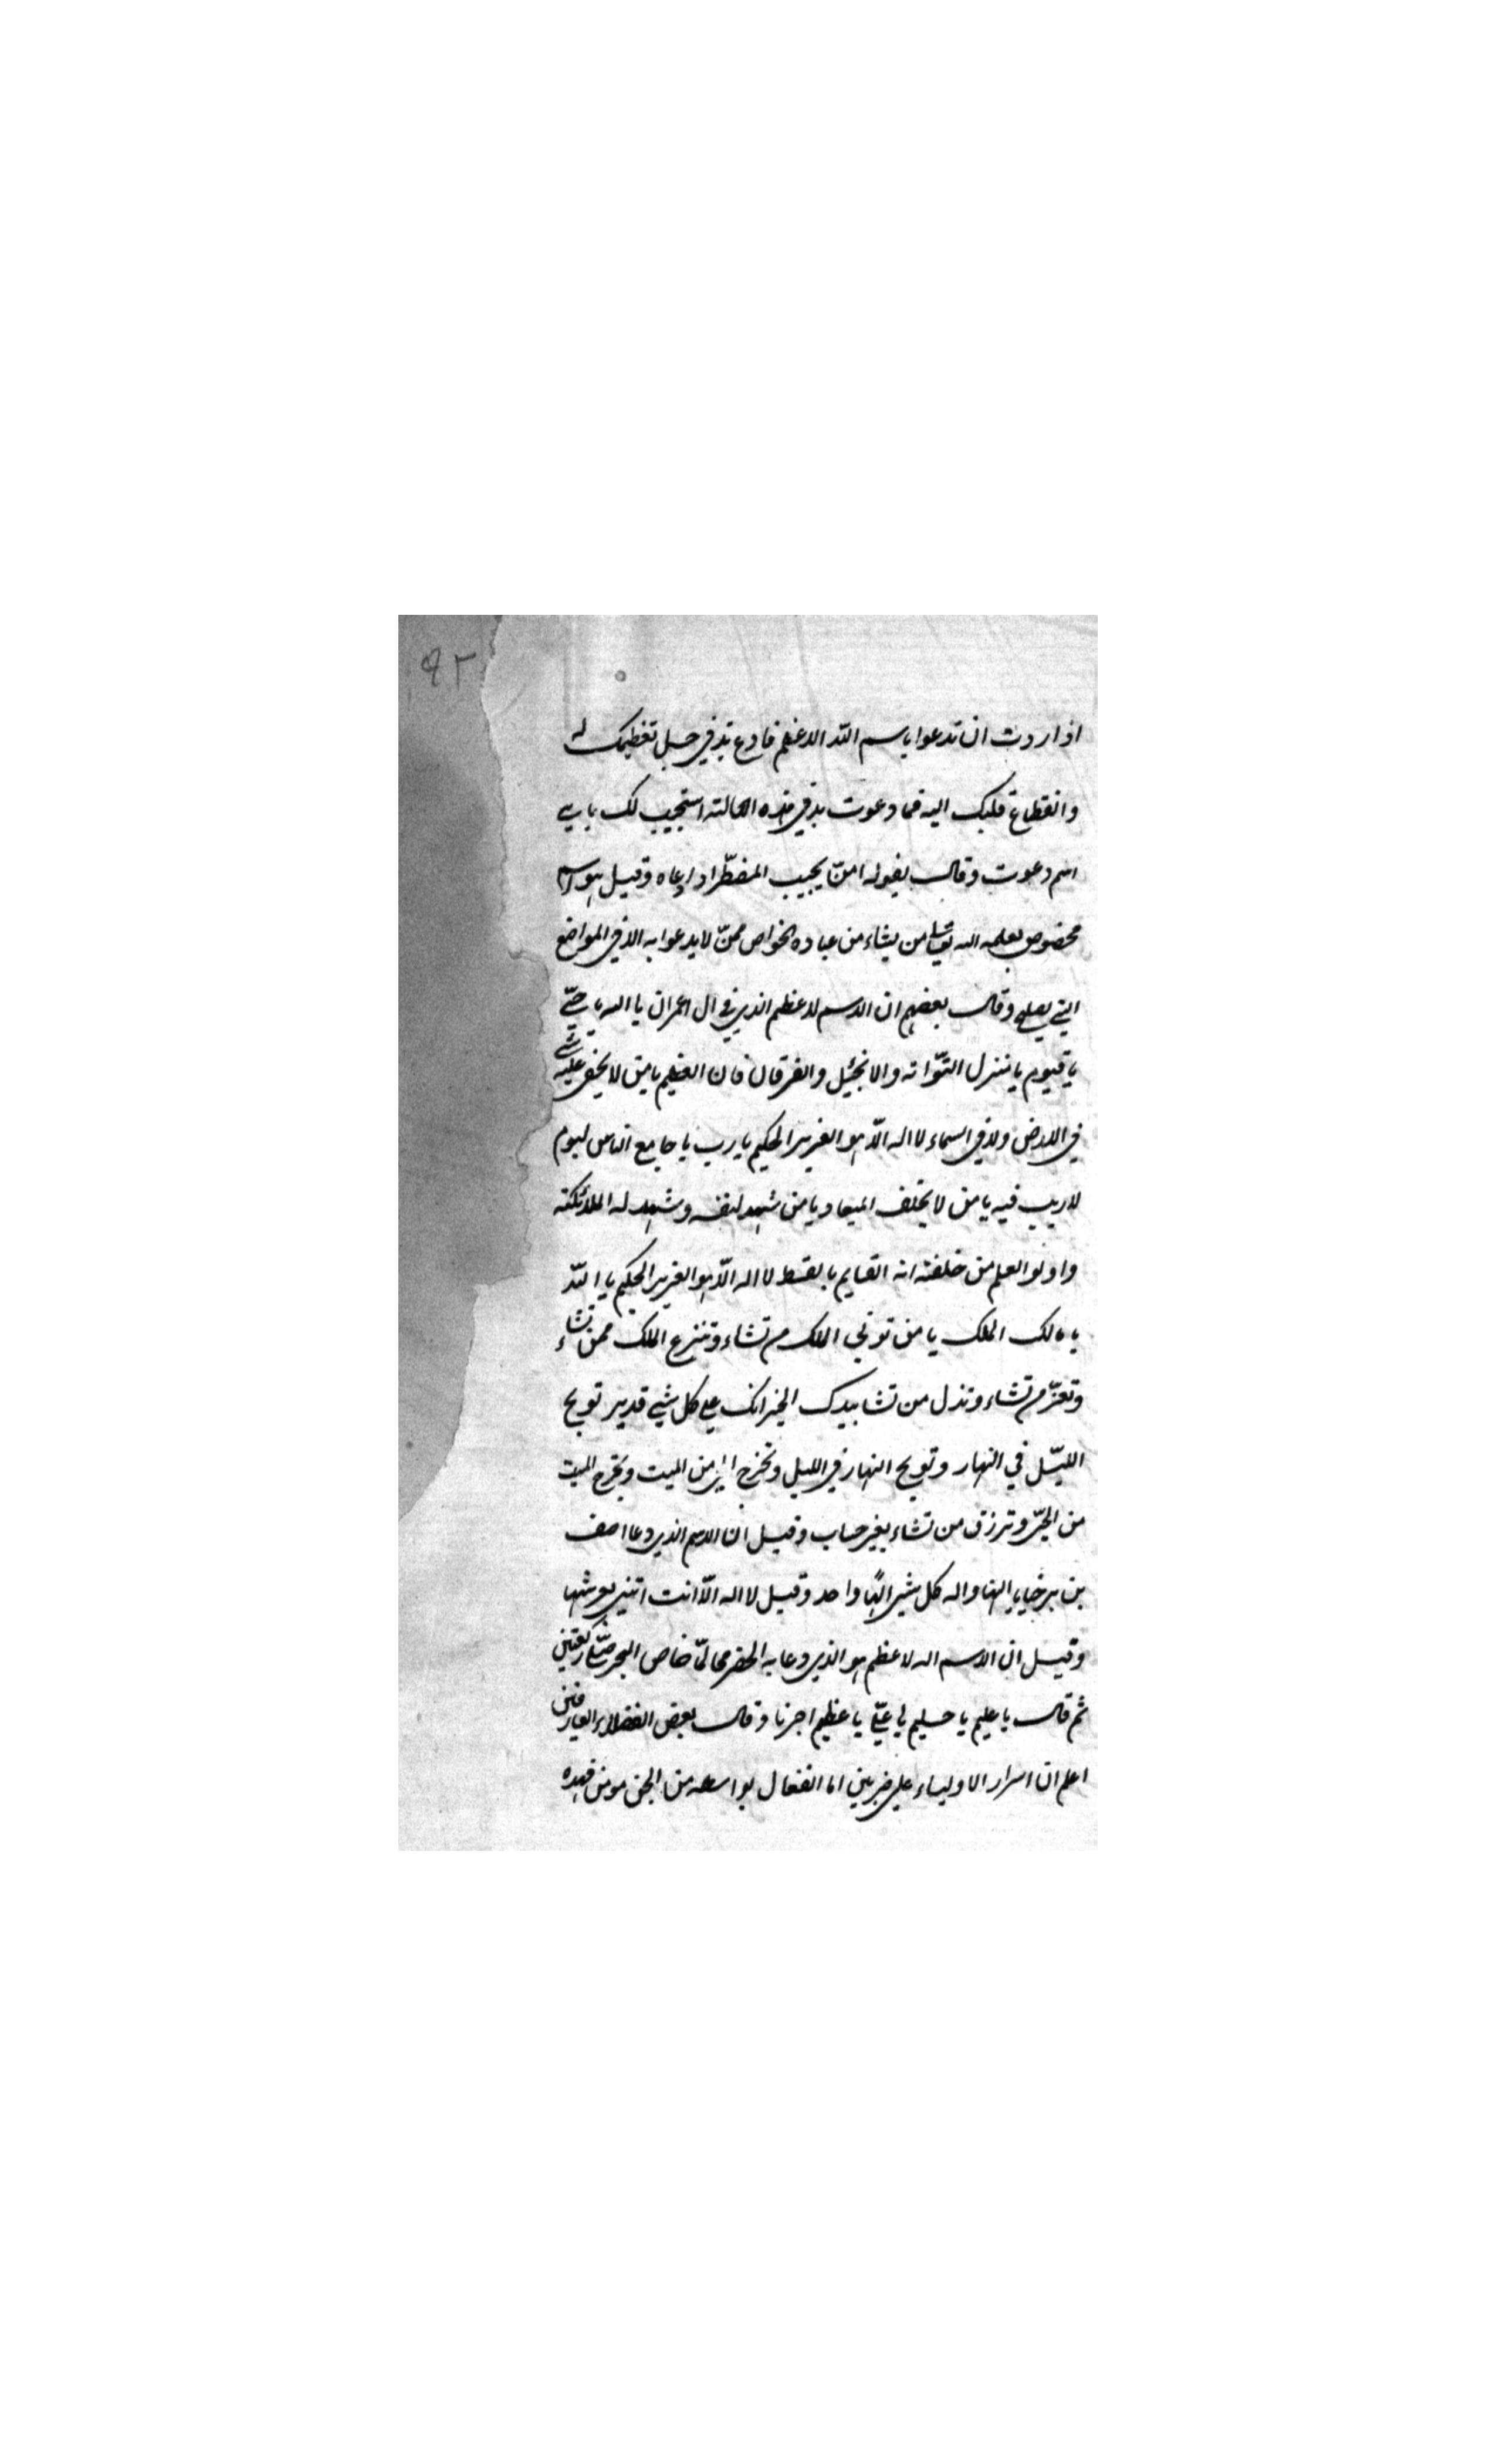 ٩٢
اذا اردت ان تدعوا باسم الله الاعظم فادع به في حبل تعظيمك له
وانقطاع قلبك اليه فما دعوت به في هذه الحالته استجيب لك باي
اسم دعوت وقال بقوله امنّ يجيب المضطّر اذا دعاه وقيل هو اسم
مخصوص يعلمه الله تعالى من يشاء من عباده الخواص ممنّ لا يدعوا به الا في المواضع
التي يصلح وقال بعضهم ان الاسم الاعظم الذي في ال عمران يا الله يا حيّ
يا قيوم يا منزل التوّراته والانجئيل والفرقان فان العظيم يا من لا يخفى عليه شي
في الارض ولا في السماء لا اله الّا هو العزيز الحكيم يا رب يا جامع الناس ليوم
لا ريب فيه يا من لا يخلف الميعاد يا من شهد لنفسه وشهد له الملائكته
واولو العلم من خلفته انه القايم بالقسط لا اله الّا هو العزيز الحكيم يا الله
يا مالك الملك يا من توتي الملك من تشاء وتنزع الملك ممن تشاء
وتعزّ من تشاء وتذل من تشا بيدك الخير انك علي كل شي قدير تويج
الليّل في النهار وتويج النهار في الليل وتخرج الحي من الميت وتخرج الميت
من الحيّ وترزق من تشاء بغير حساب وقيل ان الاسم الذي دعا اصف
بن برخيا يا الهنا واله كل شي الهًا واحد وقيل لا اله الّا انت اتني بعرشها
وقيل ان الاسم اله لاعظم هو الذي دعا به الحضرمي لمّا خاض البحر صلّى ركعتين
ثم قال يا عليم يا حليم يا عليّ يا عظيم اجرنا وقال بعض الفضلاء العارفين
اعلم ان اسرار الاولياء علي ضربين اما انفعال بواسطه من الجن مومن فهذه